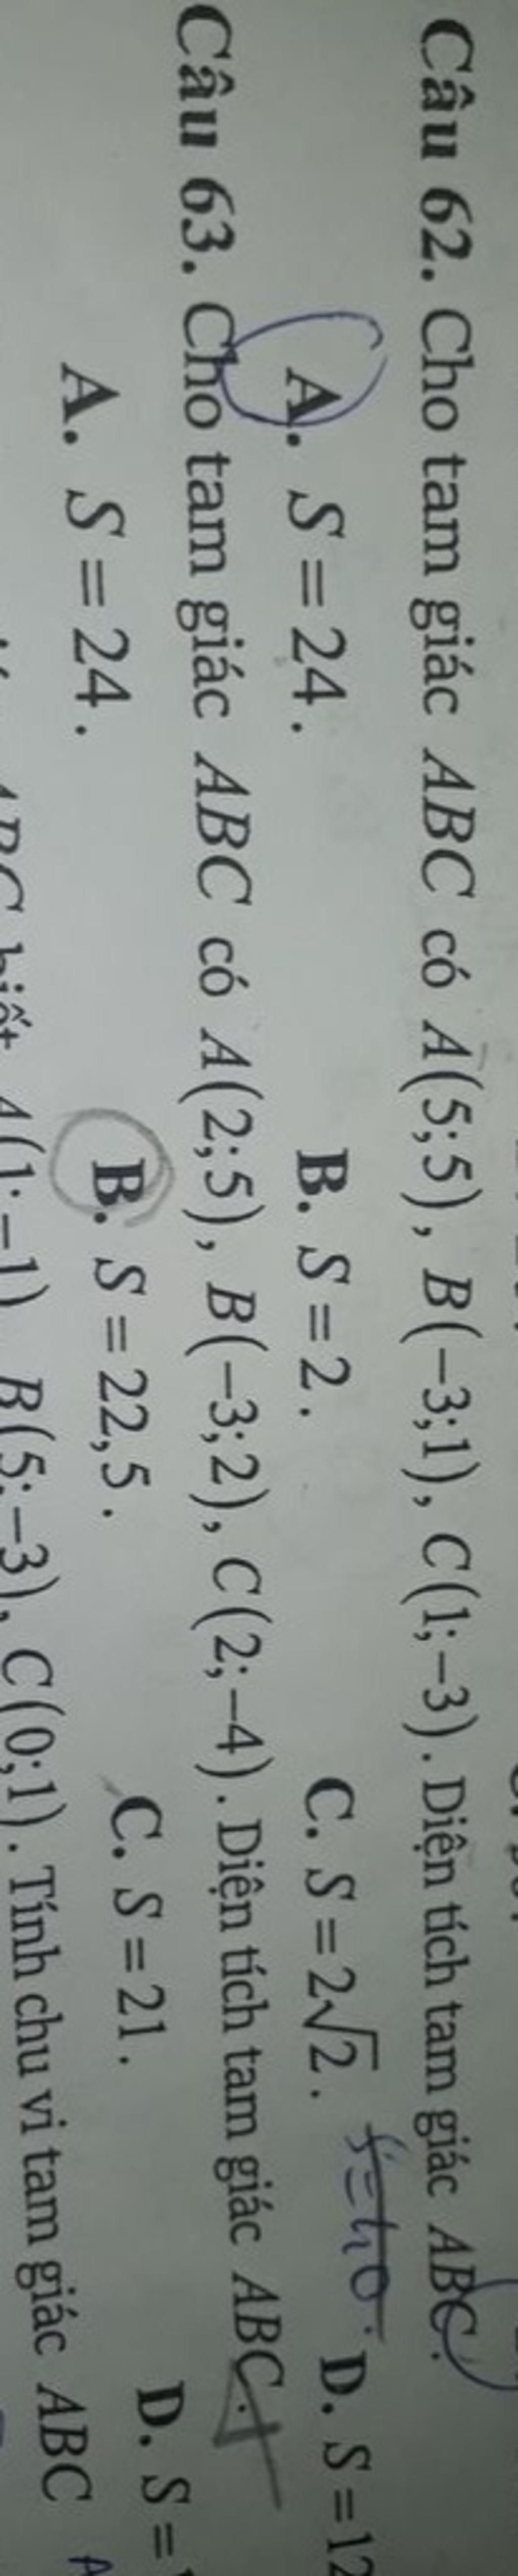 Câu 62. Cho tam giác ABC có A(5;5), B(−3;1), C(1;−3). Diện tích tam giác ABC.
A. S = 24. B. S = 2. C. S = 2√2. D. S = 12
Câu 63. Cho tam giác ABC có A(2;5), B(−3;2), C(2;−4). Diện tích tam giác ABC.
A. S = 24. B. S = 22,5. C. S = 21. D. S =
ABC biết A(1;−1) B(5;−3), C(0;1). Tính chu vi tam giác ABC